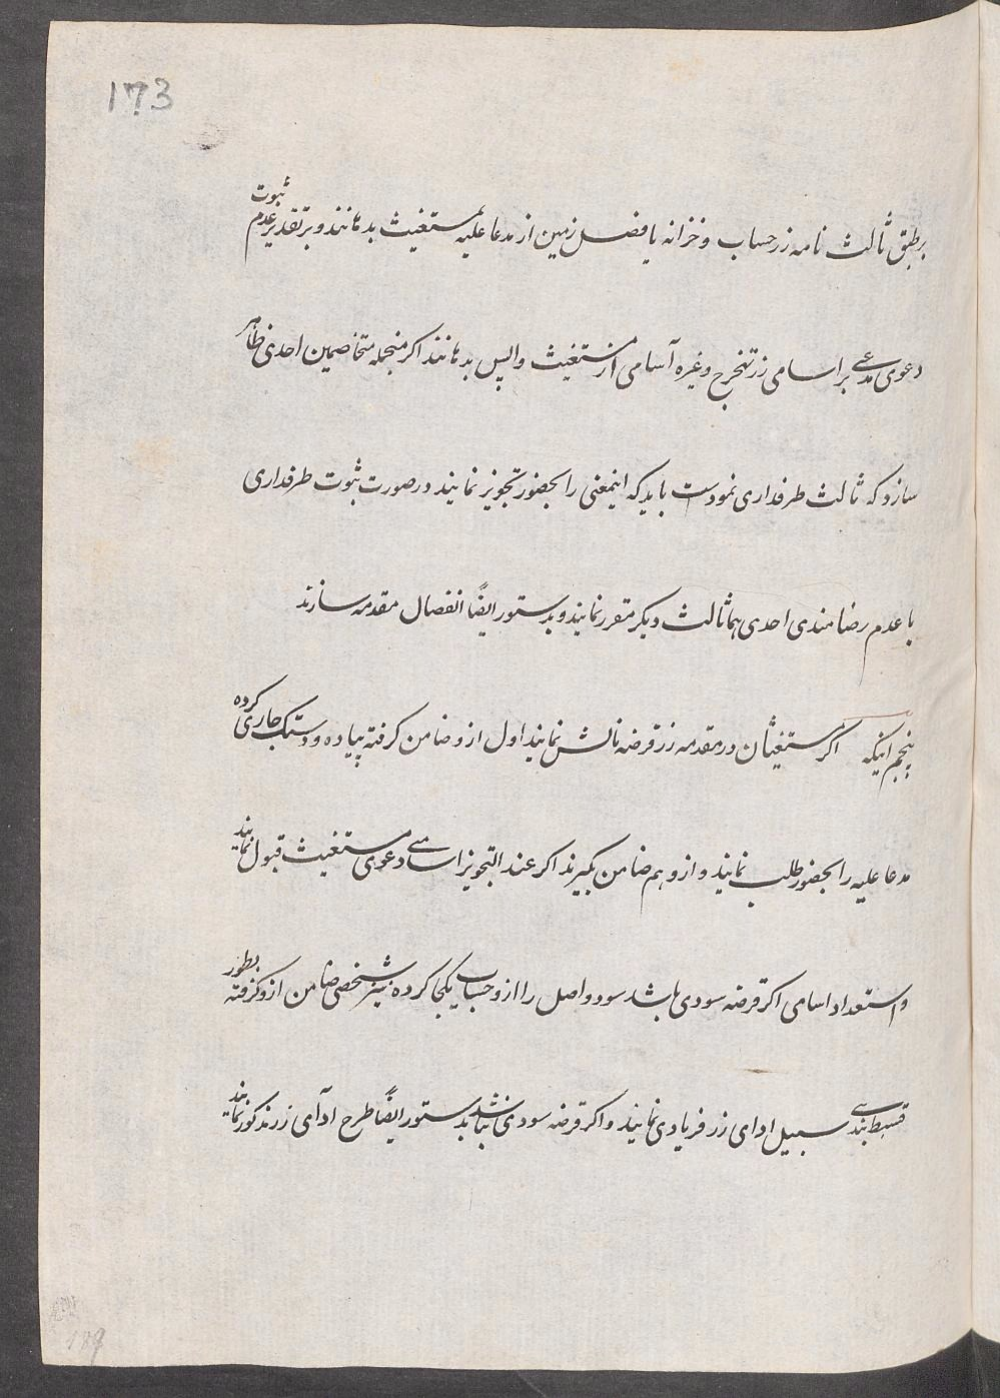 173
برطبق ثالث نامه زر حساب و خزانه یا فصل زمین از مدعا علیه بمستغیث بدهانند و بر تقدیر عدم ثبوت
دعوی مدعی براسامی زر تنخرج وغیره آسامی از مستغیث واپس بدهانند اکر منجمله متخاصمین احدی ظاهر
سازد که ثالث طرفداری نمودست باید که اینمعنی را بحضور تجویز نمایند در صورت ثبوت طرفداری
با عدم رضامندی احدی همانا ثالث دیکر مقرر نمایند و بدستور ایضًا انفصال مقدمه سازند
پنجم اینکه اکر مستغیثان در مقدمه زر قرضه نالش نمایند اول ازو ضامن کرفته پیاده و دستک جاری کرده
مدعا علیه را بحضور طلب نمایند و ازو هم ضامن بکیرند اکر عند التجویز اسامی دعوی مستغیث قبول نماید
و استعداد اسامی اکر قرضه سودی باشد سود واصل را از و حساب یکجا کرده بتشخصی ضامن ازو کرفته بطور
قسط بندی سبیل ادای زر فریادی نمایند و اکر قرضه سودی نباشد بدستور ایضًا طرح ادآی زر مذکور نمایند
189